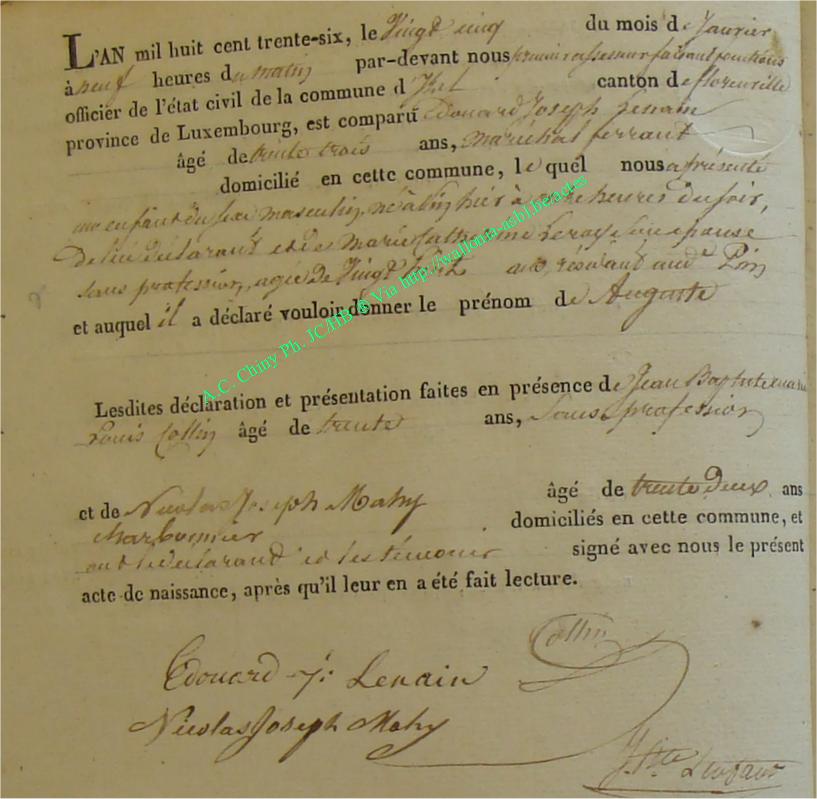 L'AN mil huit cent trente-six, le Vingt cinq du mois de Janvier
à neuf heures du matin par-devant nous premier assesseur faisant fonctions
officier de l'état civil de la commune d' canton de florenville
province de Luxembourg, est comparu Edouard Joseph Lenain
âgé de trente trois ans, marechal ferrant
domicilié en cette commune, lequel nous a présenté
un enfant du sexe masculin, né à hier à onze heures du soir,
de lui déclarant et de Marie Catherine Leroy son épouse
sans profession, agée de Vingt ans, résidant aud
et auquel il a déclaré vouloir donner le prénom de Auguste
A.C. Chiny Ph. JC/HB © Via http://wallonia-asbl.be/actes
Lesdites déclaration et présentation faites en présence de Jean Baptiste
Louis Collin âgé de trente ans, Sans profession
et de Nicolas Joseph Mahy âgé de trente deux ans
charbonnier domiciliés en cette commune, et
ont le déclarant et les témoins signé avec nous le présent
acte de naissance, après qu'il leur en a été fait lecture.
Collin
Edouard J. Lenain
Nicolas Joseph Mahy